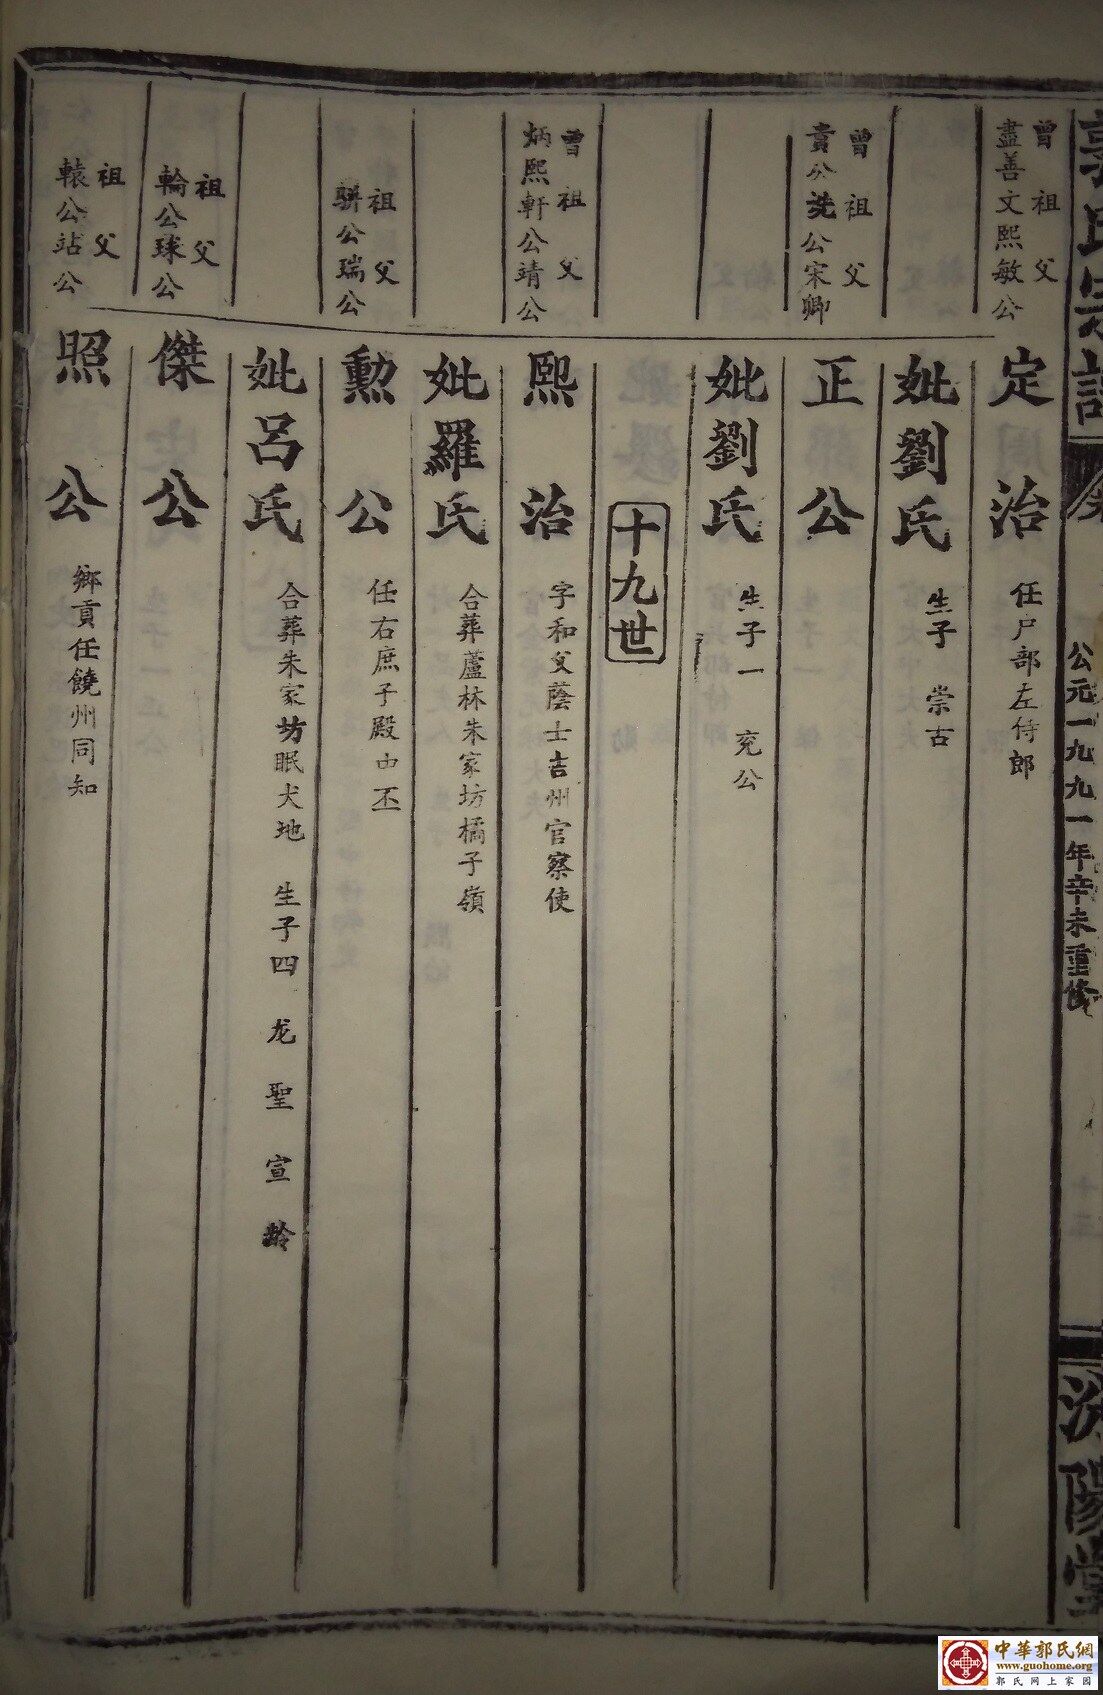 郭氏宗譜
公元一九九一年辛未重修
十三
汾陽堂
曾祖父
盡善文熙敏公
定治
任尸部左侍郎
妣劉氏
生子 崇古
曾祖父
貴公洗公宋卿
正公
妣劉氏
生子一 兖公
十九世
曾祖父
炳熙軒公靖公
熙治
字和父蔭士吉州官察使
妣羅氏
合葬蘆林朱家坊橘子嶺
祖父
騈公瑞公
勳公
任右庶子殿由丕
妣呂氏
合葬朱家坊眠犬地 生子四 龙 聖 宣 齡
祖父
輪公球公
傑公
祖父
轅公站公
照公
鄉貢任饒州同知
中華郭氏網
www.guohome.org
郭氏网上家园